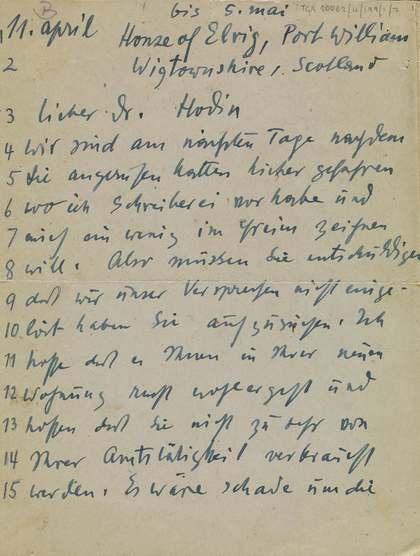 bis 5. mai TGA 20062/4/199/1/2
1 11. April House of Elrig, Port William
2 Wigtownshire, Scotland
3 lieber Dr. Hodin
4 wir sind am nächsten Tage nachdem
5 Sie angerufen hatten hieher gefahren
6 wo ich Schreiberei vorhabe und
7 auch ein wenig im Freien zeichnen
8 will. Also müssen Sie entschuldigen
9 dass wir unser Versprechen nicht einge-
10 löst haben Sie aufzusuchen. Ich
11 hoffe dass es Ihnen in Ihrer neuen
12 Wohnung recht wohlergeht und
13 hoffen dass Sie nicht zu sehr von
14 Ihrer Amtstätigkeit verbraucht
15 werden. Es wäre schade um die